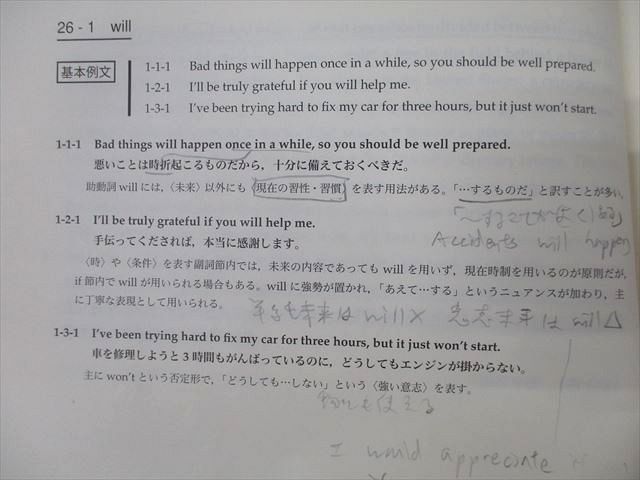 26 - 1 will
基本例文
1-1-1 Bad things will happen once in a while, so you should be well prepared.
1-2-1 I'll be truly grateful if you will help me.
1-3-1 I've been trying hard to fix my car for three hours, but it just won't start.
1-1-1 Bad things will happen once in a while, so you should be well prepared.
悪いことは時折起こるものだから，十分に備えておくべきだ。
助動詞 will には，〈未来〉以外にも〈現在の習性・習慣〉を表す用法がある。「…するものだ」と訳すことが多い。
「～することがよくある」
Accidents will happen
1-2-1 I'll be truly grateful if you will help me.
手伝ってくだされば，本当に感謝します。
〈時〉や〈条件〉を表す副詞節内では，未来の内容であっても will を用いず，現在時制を用いるのが原則だが，
if 節内で will が用いられる場合もある。will に強勢が置かれ，「あえて…する」というニュアンスが加わり，主
に丁寧な表現として用いられる。
単純未来は will× 意志未来は will△
1-3-1 I've been trying hard to fix my car for three hours, but it just won't start.
車を修理しようと 3 時間もがんばっているのに，どうしてもエンジンが掛からない。
主に won't という否定形で，「どうしても…しない」という〈強い意志〉を表す。
物にも使える
I would appreciate